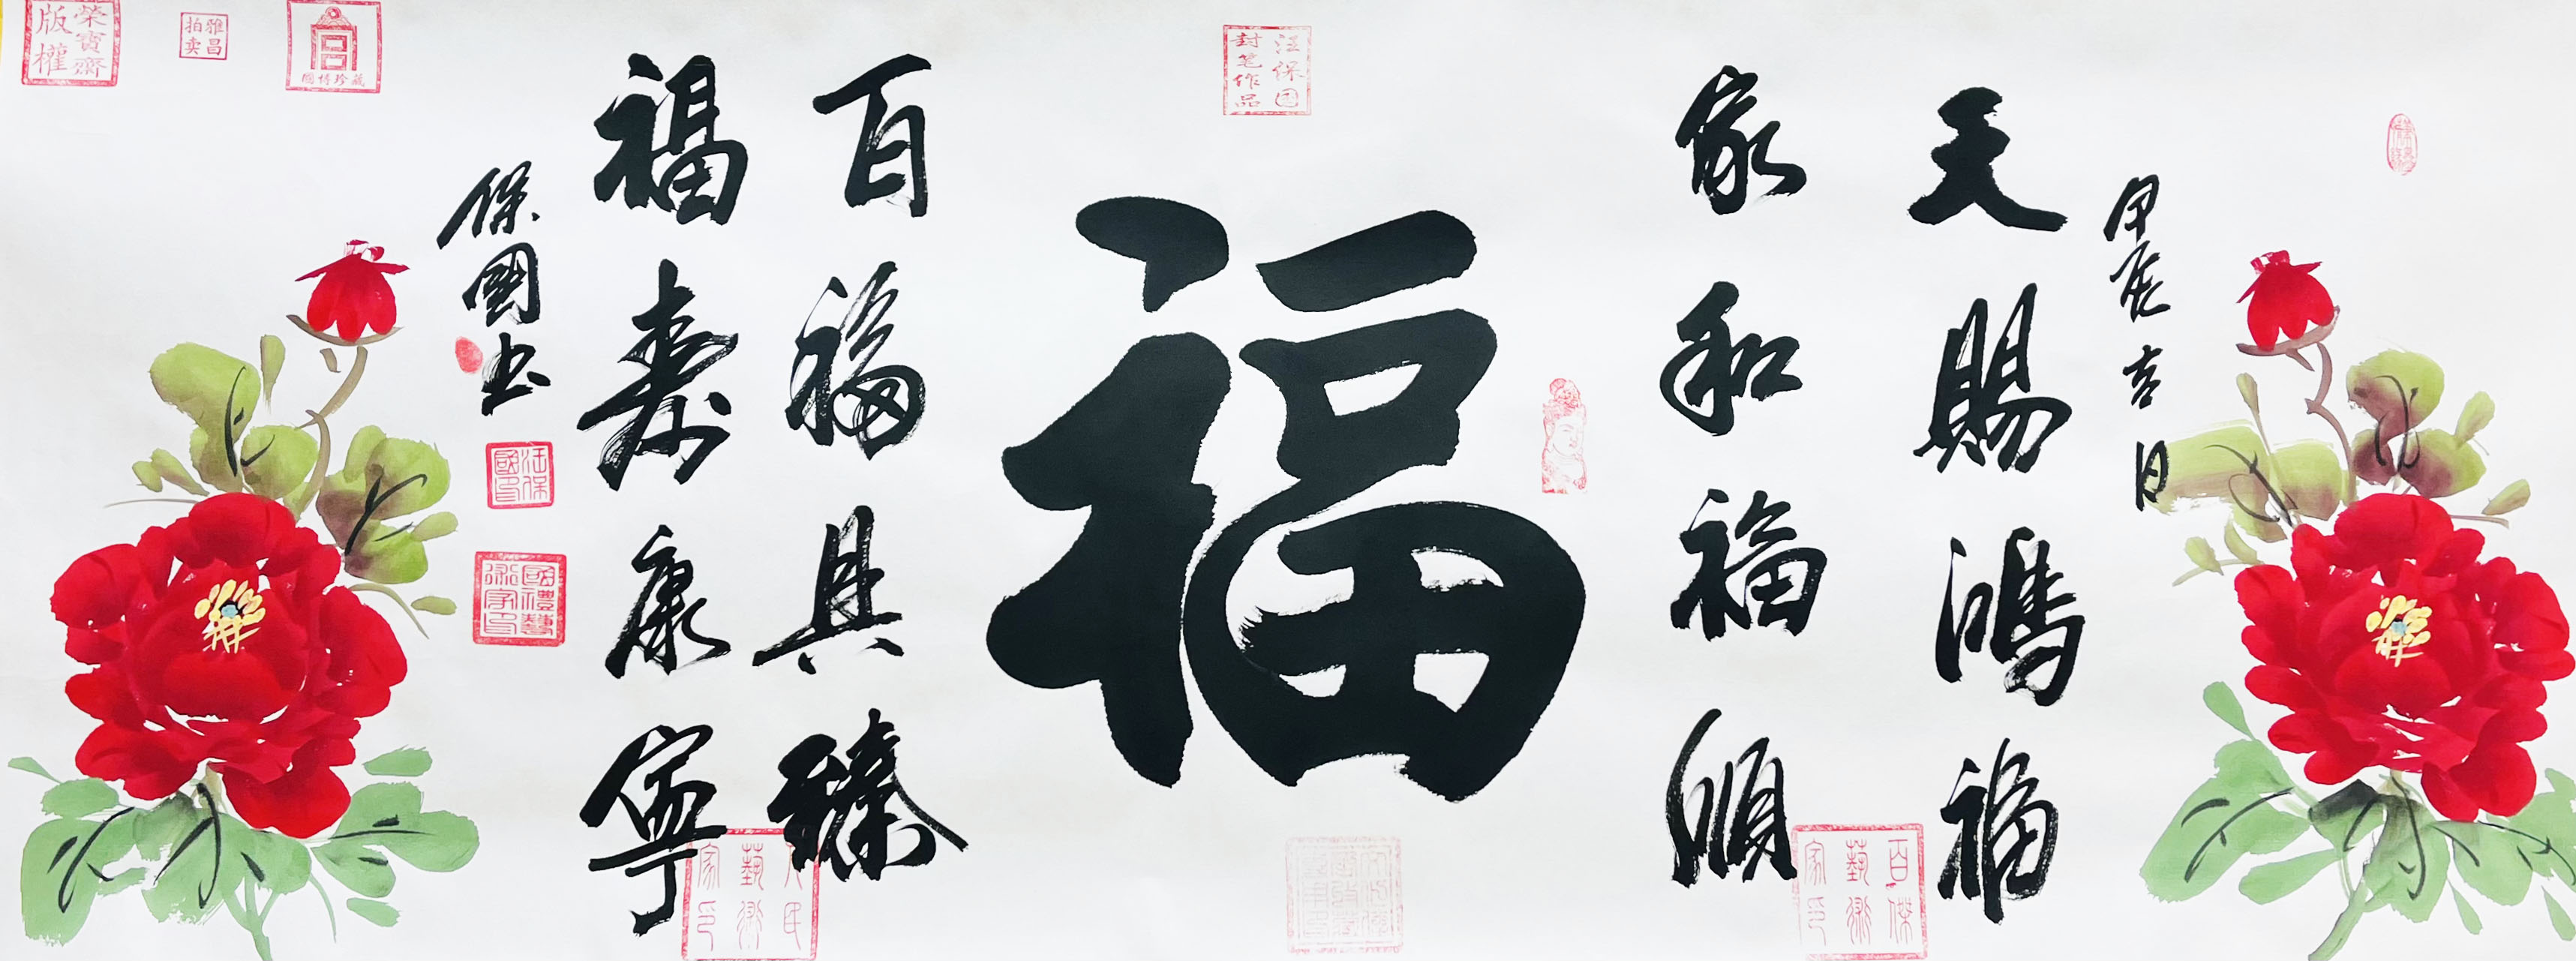 甲辰吉日
天賜鴻福
家和福順
福
百福具臻
福壽康寧
保國书
汪保國印
國禮藝術家印
汪保国封笔作品
國博珍藏
雅昌拍卖
榮寶齋版權
百傑藝術家印
人民藝術家印